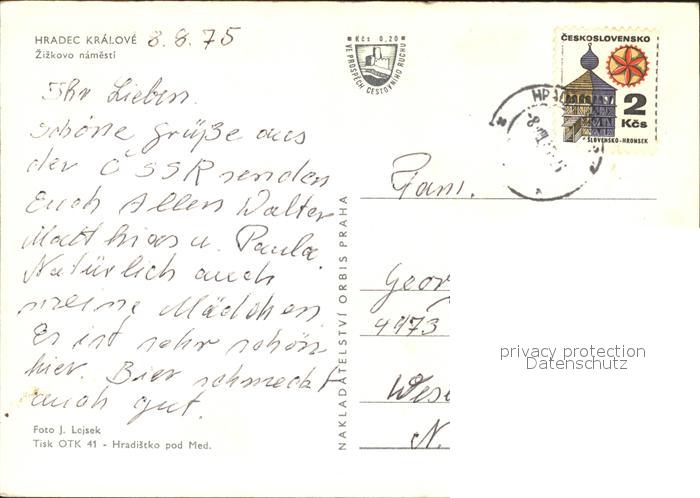 HRADEC KRÁLOVÉ 8.8.75
Žižkovo náměstí
Ihr Lieben.
schöne Grüße aus
der ČSSR senden
Euch Allen Walter
Matthias u. Paula.
Natürlich auch
meine Mädchen
Es ist sehr schön
hier. Bier schmeckt
auch gut.
Foto J. Lojsek
Tisk OTK 41 - Hradištko pod Med.
NAKLADATELSTVÍ ORBIS PRAHA
Kčs 0,20
VE PROSPĚCH CESTOVNÍHO RUCHU
ČESKOSLOVENSKO
2
Kčs
SLOVENSKO-HRONSEK
HRAD
Fam.
Geor
4973
Wese
N.
privacy protection
Datenschutz